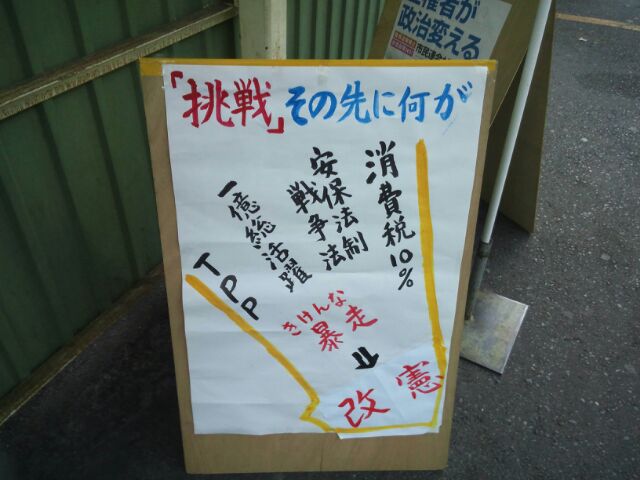 「挑戦」その先に何が
消費税10%
安保法制
戦争法
一億総活躍
TPP
きけんな
暴走
⇓
改憲
政治変える